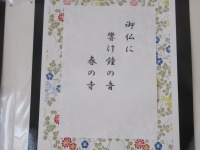 御仏に
響け鐘の音
春の寺